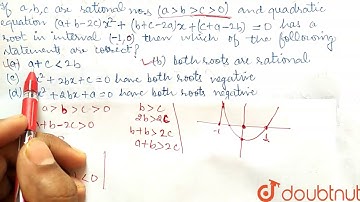 If a,b,c are rational nos (a>b>c>0) and quadratic
equation (a+b-2c)x²+(b+c-2a)x+(c+a-2b)=0 has a
root in interval (-1,0) then which of the following
statements are correct?
a+c<2b (b) both roots are rational.
(c) x²+2bx+c=0 have both roots negative
(d) x²+2bx+a=0 have both roots negative
a>b>c>0 b>c
b-2c>0 2b>2c
b+b>2c
a+b>2c
<0
-1 1
doubtnut